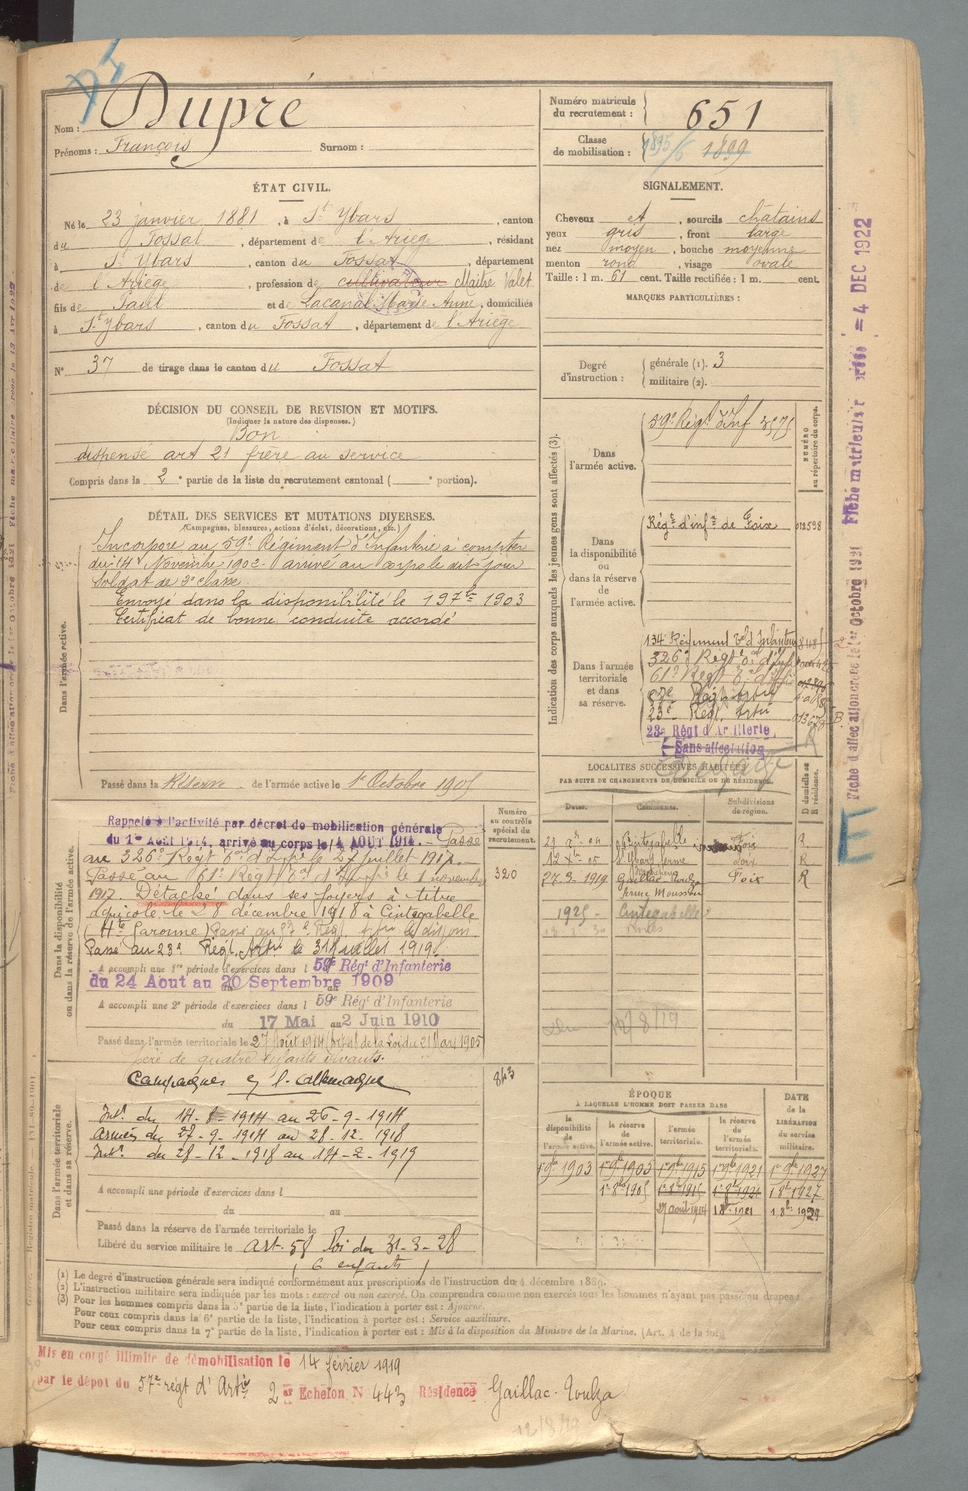 Nom : Dupré
Prénoms : François Surnom :
Numéro matricule du recrutement : 651
Classe de mobilisation : 1895/6 1899
ÉTAT CIVIL.
Né le 23 janvier 1881, à St Ybars, canton
du Fossat, département de l'Ariège, résidant
à St Ybars, canton du Fossat, département
de l'Ariège, profession de cultivateur Maître Valet
fils de Paul et de Lacanal Marie Anne, domiciliés
à St Ybars, canton du Fossat, département de l'Ariège
N° 37 de tirage dans le canton du Fossat
SIGNALEMENT.
Cheveux et, sourcils châtains
yeux gris, front large
nez moyen, bouche moyenne
menton rond, visage ovale
Taille : 1 m. 61 cent. Taille rectifiée : 1 m. cent.
MARQUES PARTICULIÈRES :
Degré d'instruction : générale (1). 3
militaire (2).
DÉCISION DU CONSEIL DE REVISION ET MOTIFS.
(Indiquer la nature des dispenses.)
Bon
dispensé art 21 frère au service
Compris dans la 2e partie de la liste du recrutement cantonal ( e portion).
DÉTAIL DES SERVICES ET MUTATIONS DIVERSES.
(Campagnes, blessures, actions d'éclat, décorations, etc.)
Dans l'armée active.
Incorporé au 59e Régiment d'Infanterie à compter
du 14 Novembre 1902 arrivé au corps le dit jour
Soldat de 2e classe
Envoyé dans la disponibilité le 19 7bre 1903
Certificat de bonne conduite accordé
Passé dans la Réserve de l'armée active le 1er Octobre 1905
Indication des corps auxquels les jeunes gens sont affectés (3).
NUMÉRO au répertoire du corps.
Dans l'armée active.
59e Régt d'Inf 3575
Dans la disponibilité ou dans la réserve de l'armée active.
Régt d'infie de Foix 012598
Dans l'armée territoriale et dans sa réserve.
134 Régiment tal d'Infanterie
326e Régt d'Inf
61e Régt d'Infie
23e Régt Artie
23e Régt d'Artillerie
Sans affectation
LOCALITÉS SUCCESSIVES HABITÉES
PAR SUITE DE CHANGEMENTS DE DOMICILE OU DE RÉSIDENCE.
Dates. Communes. Subdivisions de région. D domicile ou R résidence.
Cintegabelle Foix R
12 Xbre 05 St Ybars ferme Foix R
27-3-1919 Gaillac-Toulza Foix R
1925 Cintegabelle
Dans la disponibilité ou dans la réserve de l'armée active.
Numéro au contrôle spécial du recrutement.
320
Rappelé à l'activité par décret de mobilisation générale
du 1er AOUT 1914, arrivé au corps le 14 AOUT 1914. Passé
au 326e Régt d'Infie le 27 juillet 1917.
Passé au 61e Régt d'Infie le 1 novembre
1917. Détaché dans ses foyers à titre
agricole le 28 décembre 1918 à Cintegabelle
(Hte Garonne)
Passé au 23e Régt Artie le 31 juillet 1919
A accompli une 1re période d'exercices dans l 59e Régt d'Infanterie
du 24 Aout au 20 Septembre 1909
A accompli une 2e période d'exercices dans l 59e Régt d'Infanterie
du 17 Mai au 2 Juin 1910
Passé dans l'armée territoriale le 27 Août 1914 (art 48 de la Loi du 21 Mars 1905
père de quatre enfants vivants.
Campagnes c/ l'Allemagne
843
Dans l'armée territoriale et dans sa réserve.
Intr. du 14-8-1914 au 26-9-1914
armées du 27-9-1914 au 28-12-1918
Intr. du 28-12-1918 au 14-2-1919
A accompli une période d'exercices dans l
du au
Passé dans la réserve de l'armée territoriale le
Libéré du service militaire le art. 58 loi du 31-3-28
( 6 enfants )
ÉPOQUE
À LAQUELLE L'HOMME DOIT PASSER DANS
la disponibilité de l'armée active. la réserve de l'armée active. l'armée territoriale. la réserve de l'armée territoriale. DATE de la LIBÉRATION du service militaire.
1er 9bre 1903 1er 9bre 1903 1er 9bre 1915 1er 9bre 1921 1er 9bre 1927
1er 8bre 1905 1er 8bre 1915 1er 8bre 1921 1er 8bre 1927
27 août 1914 1 8bre 1921 1 8bre 1929
(1) Le degré d'instruction générale sera indiqué conformément aux prescriptions de l'instruction du 4 décembre 1889.
(2) L'instruction militaire sera indiquée par les mots : exercé ou non exercé. On comprendra comme non exercés tous les hommes n'ayant pas passé au drapeau
(3) Pour les hommes compris dans la 5e partie de la liste, l'indication à porter est : Ajourné.
Pour ceux compris dans la 6e partie de la liste, l'indication à porter est : Service auxiliaire.
Pour ceux compris dans la 7e partie de la liste, l'indication à porter est : Mis à la disposition du Ministre de la Marine. (Art. 4 de la loi)
Mis en congé illimité de démobilisation le 14 février 1919
par le dépôt du 57e régt d'Artie 2e Echelon N 443 Résidence Gaillac-Toulza
12/8/19
Fiche d'affectation créée le 1er Octobre 1921 Fiche matriculaire créée = 4 DEC 1922